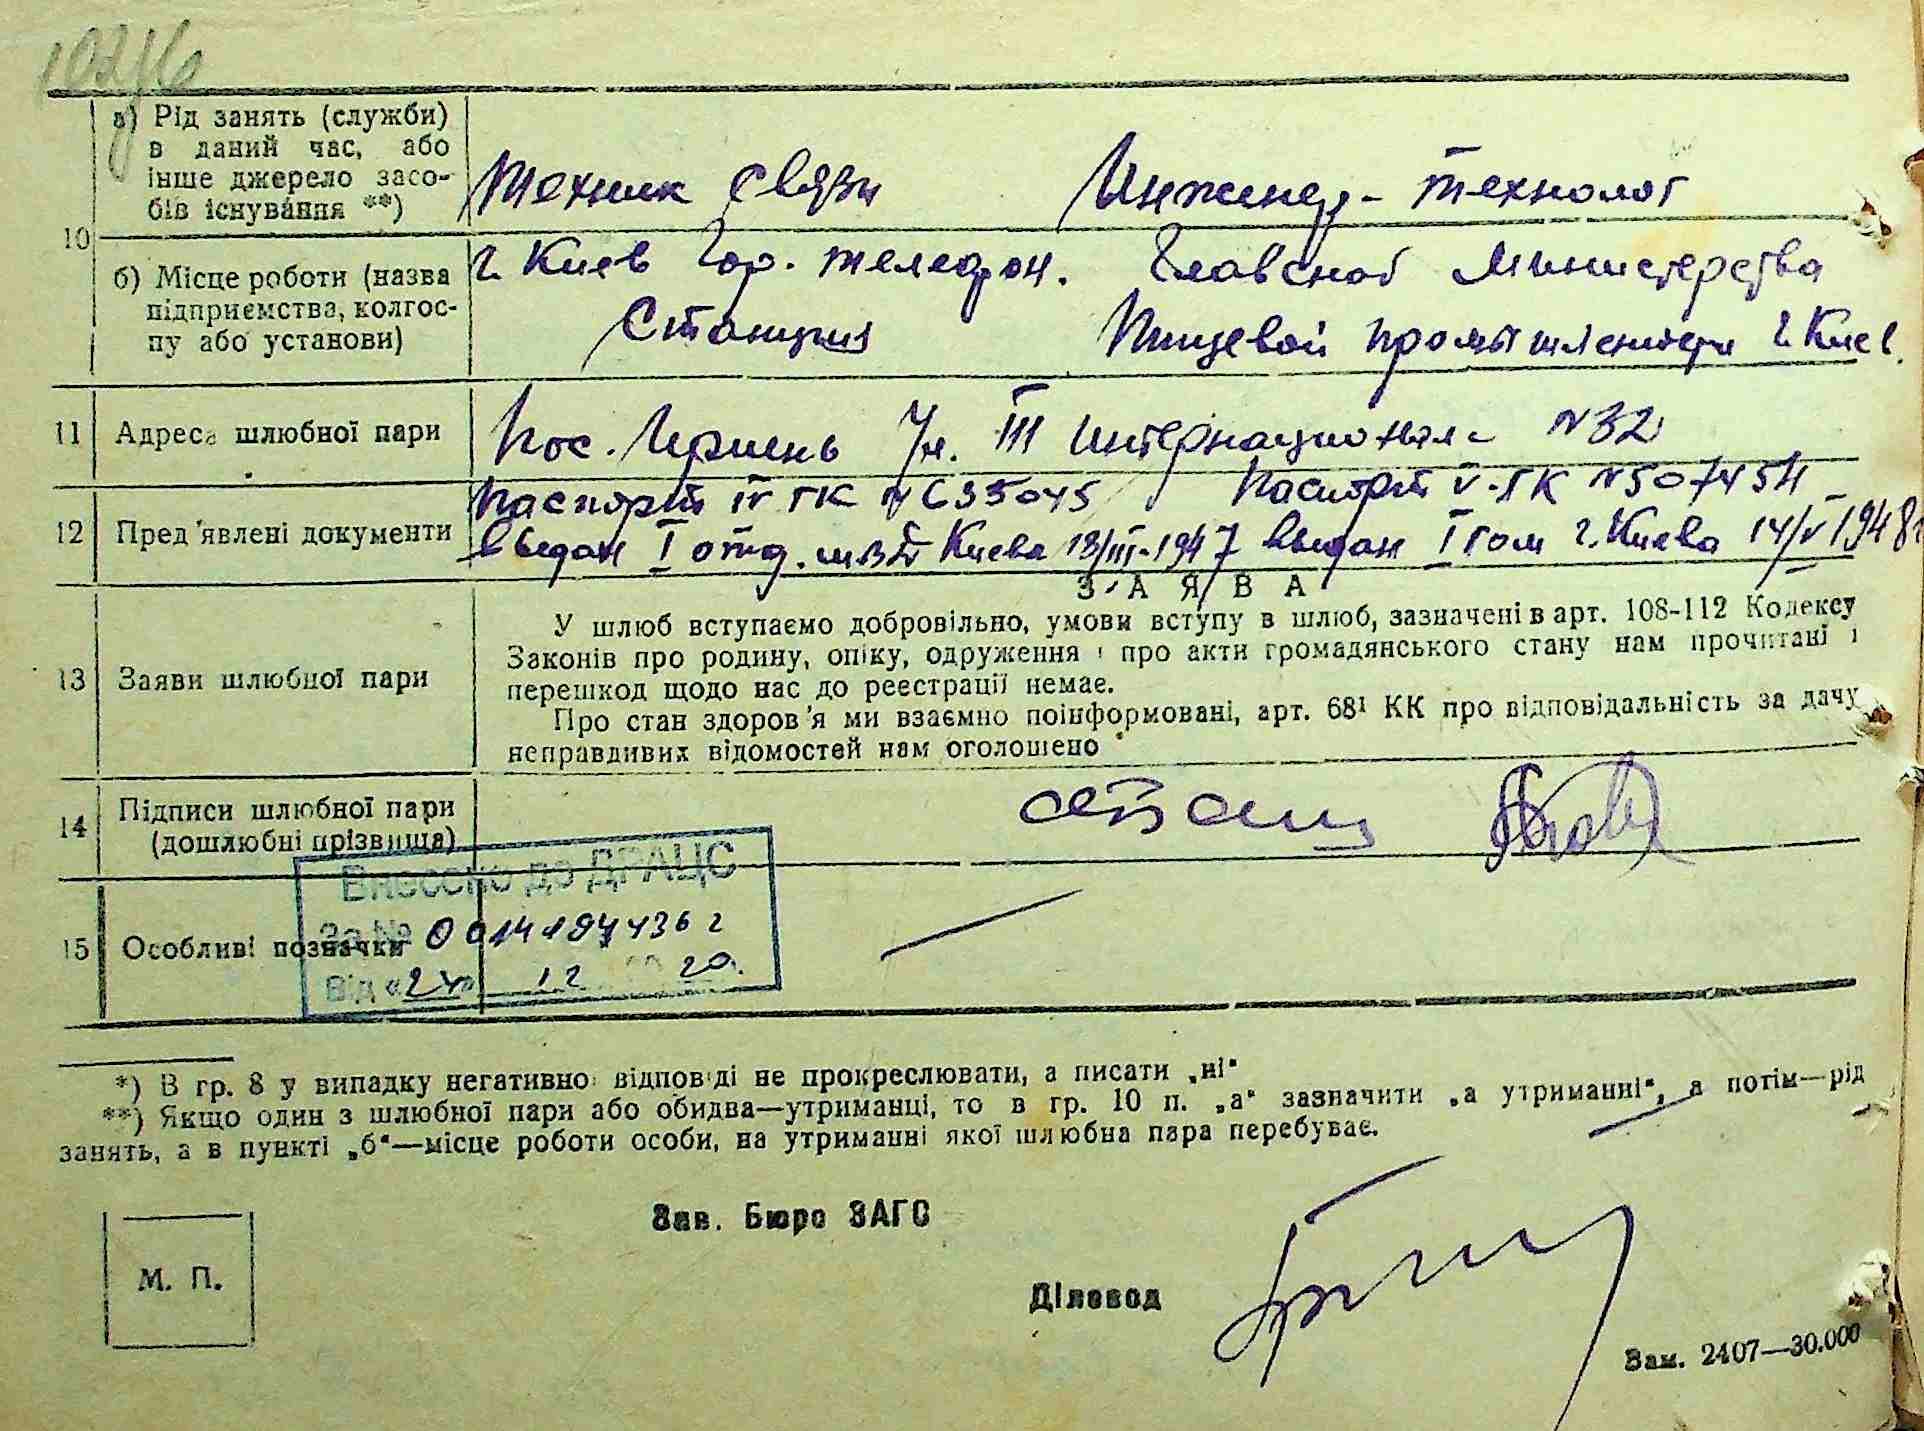 10
а) Рід занять (служби)
в даний час, або
інше джерело засо-
бів існування **)
Техник связи
Инженер-технолог
б) Місце роботи (назва
підприємства, колгос-
пу або установи)
г. Киев Гор. телефон.
Станция
Главснаб Министерства
Пищевой промышленности г. Киев.
11 Адреса шлюбної пари
Пос. Ирпень Ул. III Интернационала N 32
12 Пред'явлені документи
Паспорт IV ГК N 635045
выдан I отд. Киева 13/III-1947
Паспорт V-ГК N 507454
выдан I гом г. Киева 14/V 1948г
ЗАЯВА
13 Заяви шлюбної пари
У шлюб вступаємо добровільно, умови вступу в шлюб, зазначені в арт. 108-112 Кодексу
Законів про родину, опіку, одруження і про акти громадянського стану нам прочитані і
перешкод щодо нас до реєстрації немає.
Про стан здоров'я ми взаємно поінформовані, арт. 68¹ КК про відповідальність за дачу
неправдивих відомостей нам оголошено
14 Підписи шлюбної пари
(дошлюбні прізвища)
15 Особливі позначки
Внесено до ДРАЦС
За № 00141944362
Від «24» 12 20.
*) В гр. 8 у випадку негативної відповіді не прокреслювати, а писати „ні“
**) Якщо один з шлюбної пари або обидва—утриманці, то в гр. 10 п. „а“ зазначити „а утриманні“, а потім—рід
занять, а в пункті „б“—місце роботи особи, на утриманні якої шлюбна пара перебуває.
Зав. Бюро ЗАГС
М. П.
Діловод
Зам. 2407—30.000